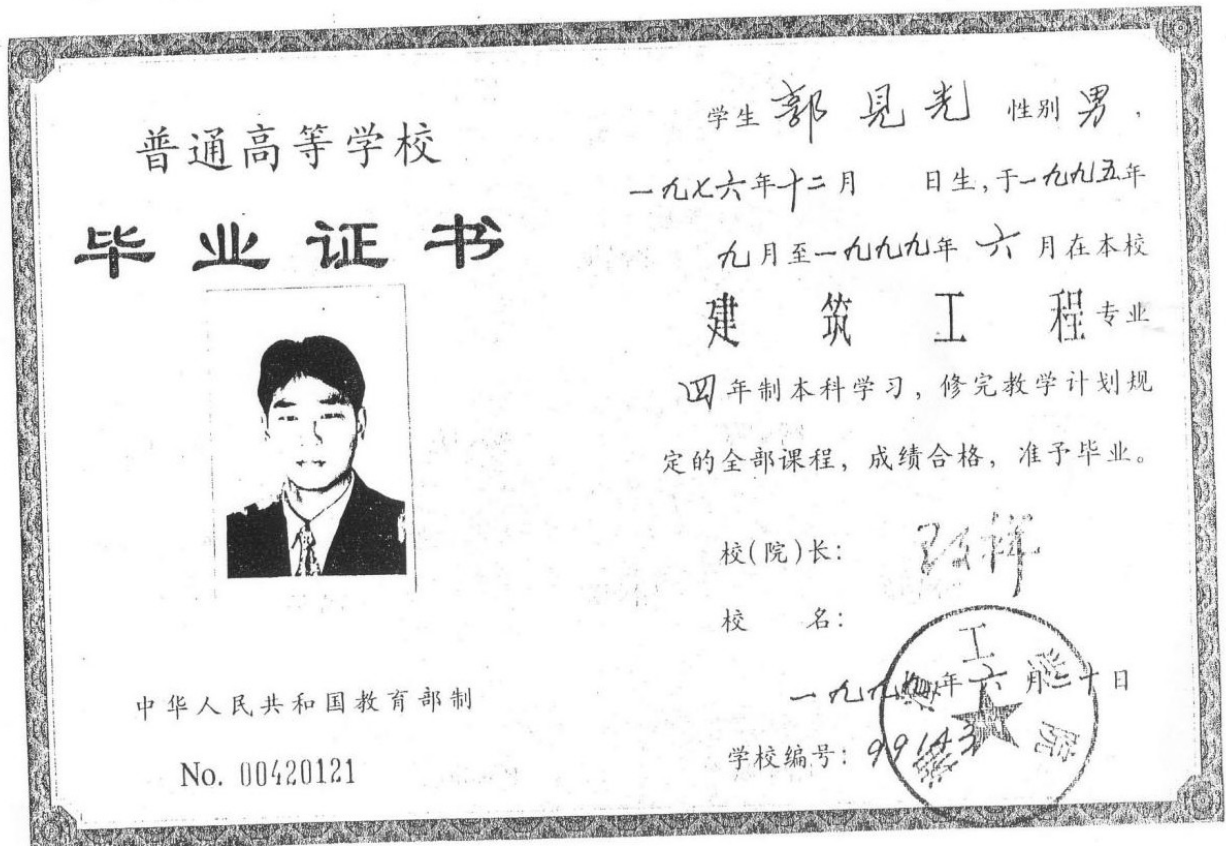 普通高等学校
毕业证书
中华人民共和国教育部制
No. 00420121
学生 郭见光 性别 男,
一九七六年十二月 日生,于一九九五年
九月至一九九九年六月在本校
建筑工程专业
四年制本科学习,修完教学计划规
定的全部课程,成绩合格,准予毕业。
校(院)长:
校 名:
一九九九年六月二十日
学校编号:99143
工学院